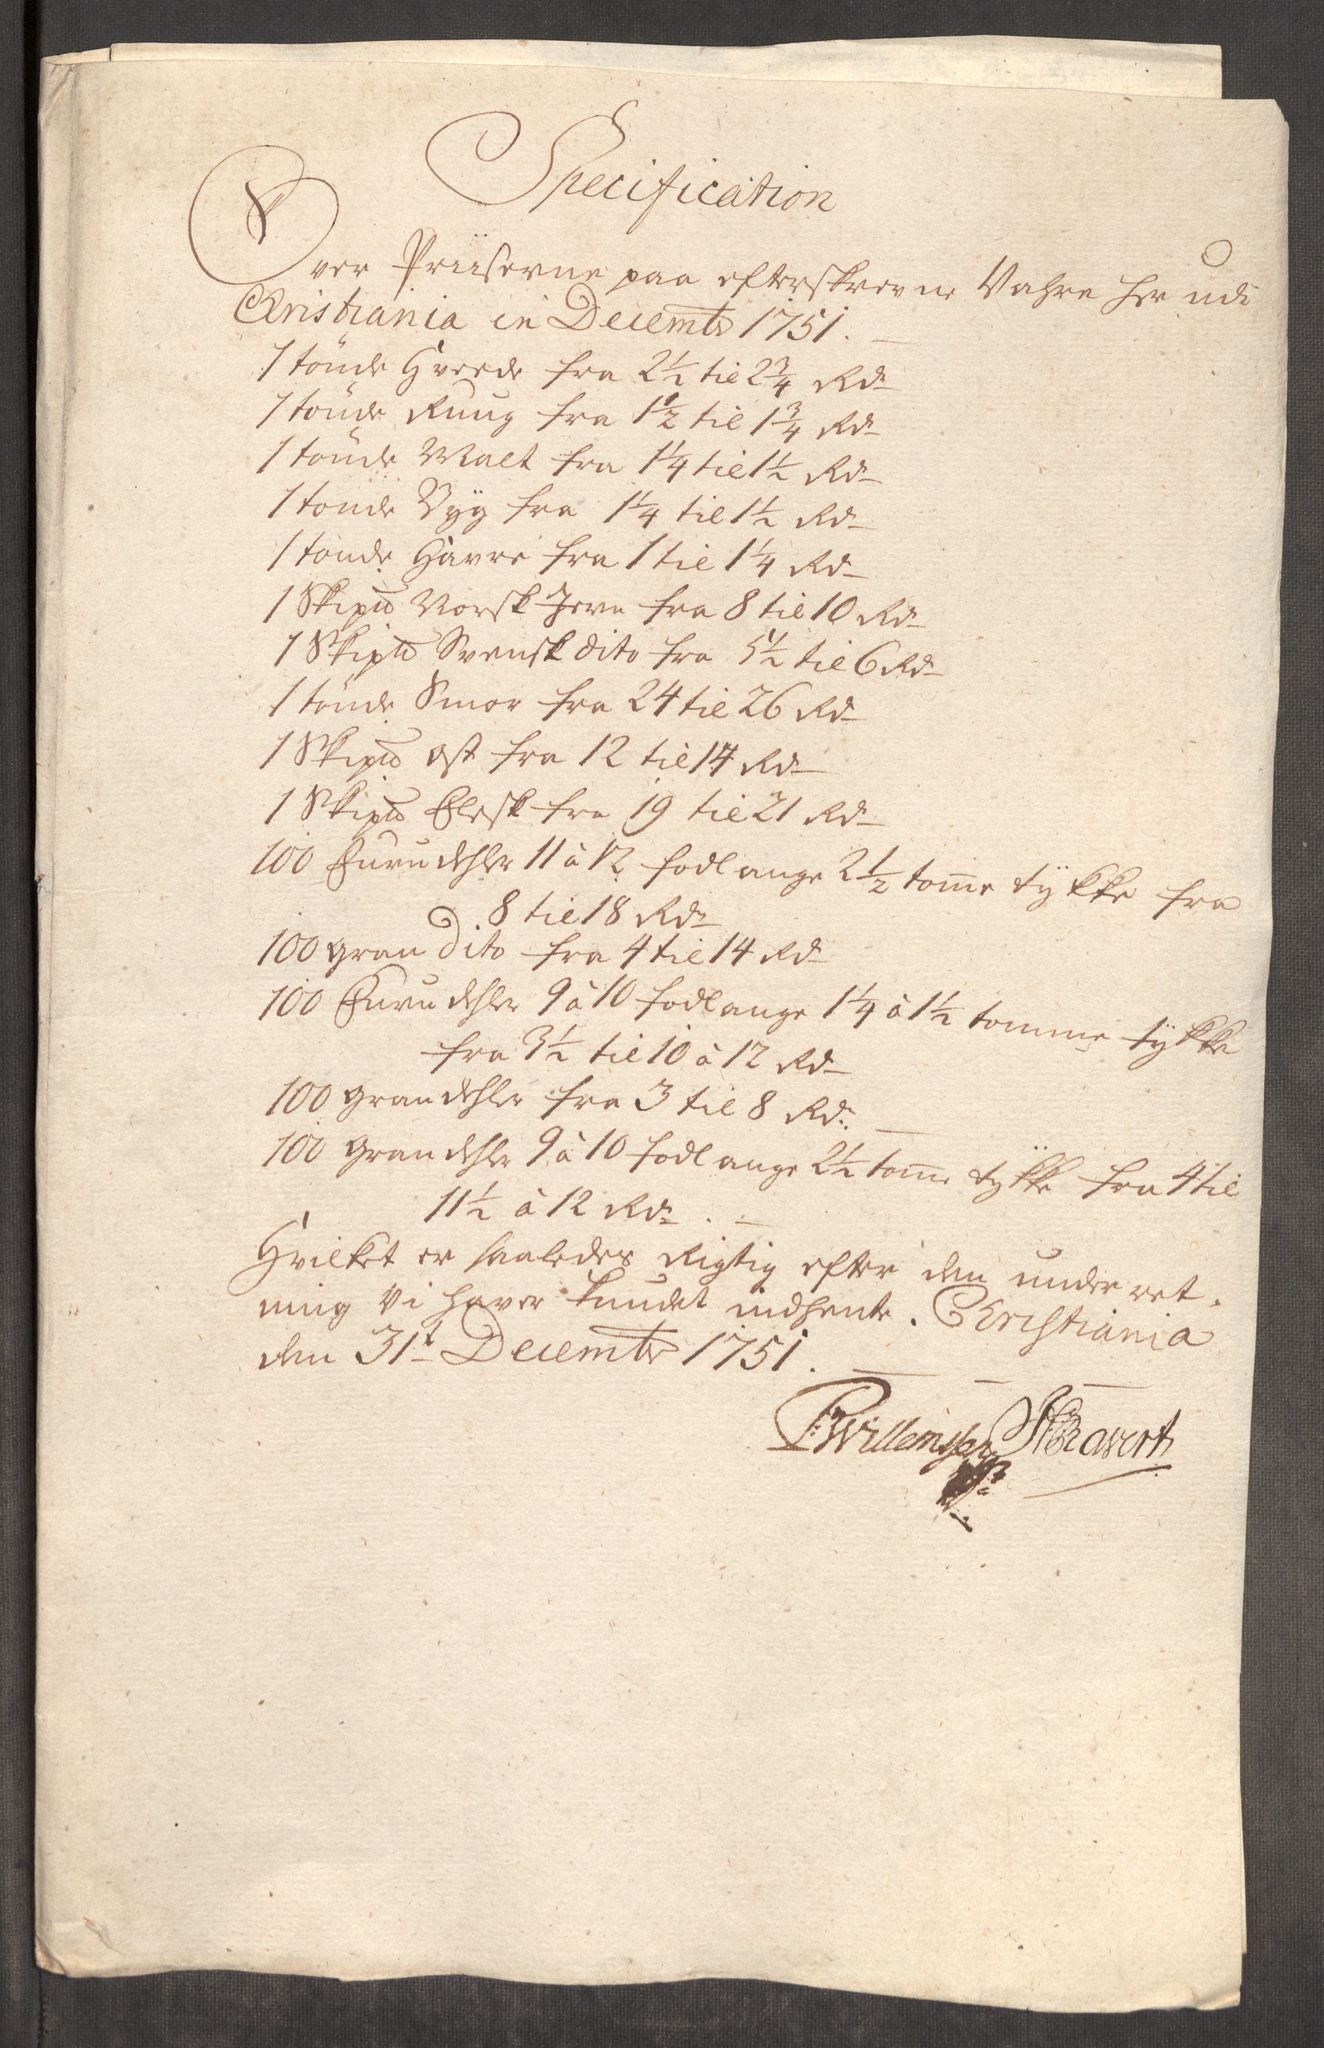 Specification
Over Priiserne paa efterskrevne Vahre her udi
Christiania in Decembr 1751.
1 tönde Hvede fra 2 1/2 til 2 3/4 Rdr
1 tönde Ruug fra 1 1/2 til 1 3/4 Rdr
1 tönde Malt fra 1 1/4 til 1 1/2 Rdr
1 tönde Byg fra 1 1/4 til 1 1/2 Rdr
1 tönde Havre fra 1 til 1 1/4 Rdr
1 Skipd Norsk Jern fra 8 til 10 Rdr
1 Skipd Svensk dito fra 5 1/2 til 6 Rdr
1 tönde Smör fra 24 til 26 Rdr
1 Skipd ost fra 12 til 14 Rdr
1 Skipd Flesk fra 19 til 21 Rdr
100 Furu dehler 11 à 12 fod lange 2 1/2 tome tykke fra
8 til 18 Rdr
100 gran Dito fra 4 til 14 Rdr
100 Furu dehler 9 à 10 fod lange 1 1/4 à 1 1/2 tomme tykke
fra 3 1/2 til 10 à 12 Rdr
100 gran dehler fra 3 til 8 Rdr.
100 gran dehler 9 à 10 fod lange 2 1/2 tome tykke fra 4 til
11 1/2 à 12 Rdr.
Hvilket er saaledes Rigtig efter den under ret-
ning Vi haver kundet indhente. Christiania
den 31t Decembr 1751.
Willemsen Ravert